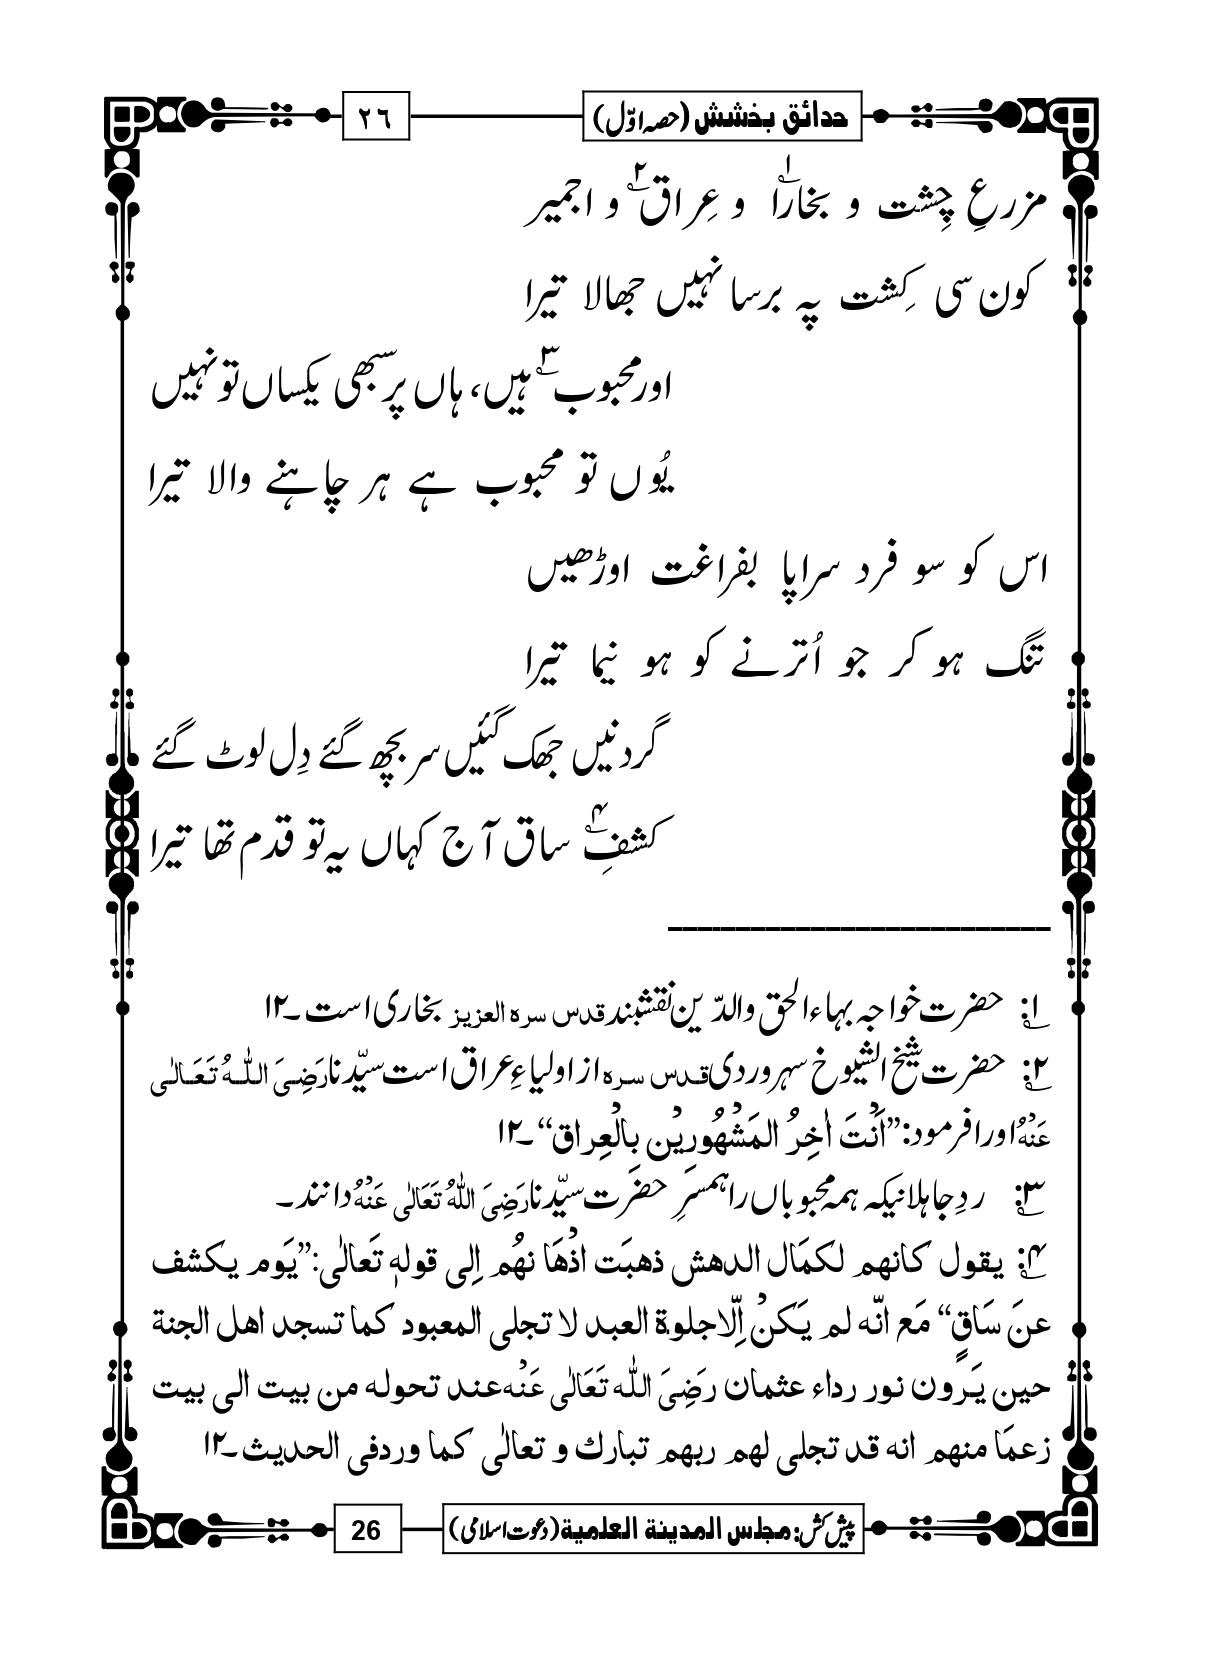 حدائق بخشش (حصہ اوّل)
٢٦
مزرعِ چِشت و بخارا ؂۱ و عِراق ؂۲ و اجمیر
کون سی کِشت پہ برسا نہیں جھالا تیرا
اور محبوب ؂۳ ہیں، ہاں پر سبھی یکساں تو نہیں
یُوں تو محبوب ہے ہر چاہنے والا تیرا
اس کو سو فرد سراپا بفراغت اوڑھیں
تنگ ہو کر جو اُترنے کو ہو نیما تیرا
گردنیں جھک گئیں سر بچھ گئے دِل لوٹ گئے
کشفِ ؂۴ ساق آج کہاں یہ تو قدم تھا تیرا
؂۱: حضرت خواجہ بہاء الحق والدّین نقشبند قدس سرہ العزیز بخاری است ۔۱۲
؂۲: حضرت شیخ الشیوخ سہروردی قدس سرہ از اولیاءِ عراق است سیّدنا رَضِیَ اللّٰہُ تَعَالٰی
عَنْہُ اورا فرمود: ”اَنْتَ اٰخِرُ المَشْهُورِیْن بِالْعِراق“ ۔۱۲
؂۳: ردِ جاہلانیکہ ہمہ محبوباں را ہمسرِ حضرت سیّدنا رَضِیَ اللّٰہُ تَعَالٰی عَنْہُ دانند۔
؂۴: یقول کانھم لکمَال الدھش ذھبَت اذْھَا نھُم اِلی قولہٖ تَعالٰی: ”یَوم یکشف
عنَ سَاقٍ“ مَع انّہ لم یَکنْ اِلّا جلوة العبد لا تجلی المعبود کما تسجد اھل الجنة
حین یَرون نور رداء عثمان رَضِیَ اللّٰہ تَعَالٰی عَنْہ عند تحولہ من بیت الی بیت
زعمَا منھم انہ قد تجلی لھم ربھم تبارك و تعالٰی کما ورد فی الحدیث ۔۱۲
پیش کش: مجلس المدینة العلمیة (دعوت اسلامی)
26